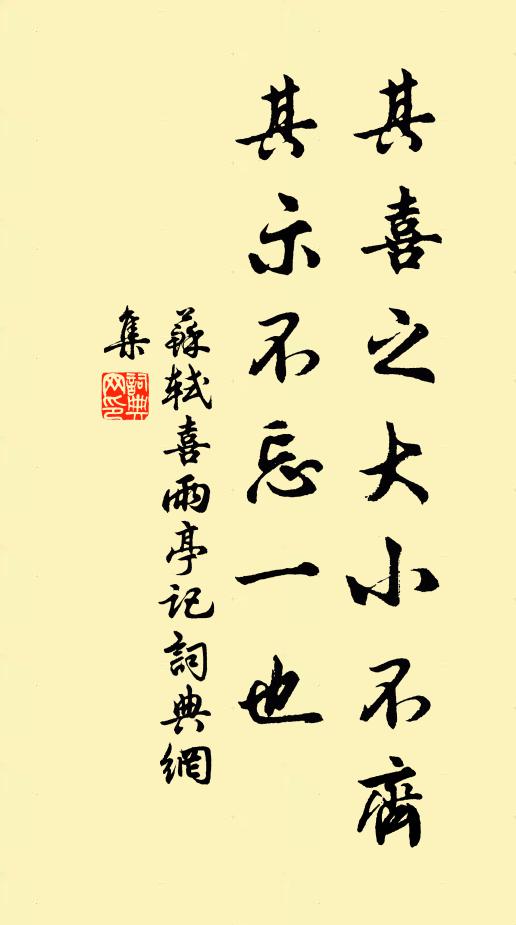 其喜之大小不齊
其示不忘一也
蘇軾喜雨亭記詞典網
集
詞典
网印